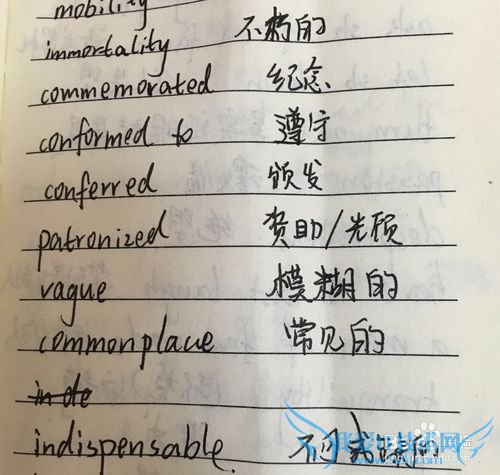 mobility
immortality 不朽的
commemorated 纪念
conformed to 遵守
conferred 颁发
patronized 资助/光顾
vague 模糊的
commonplace 常见的
in de
indispensable